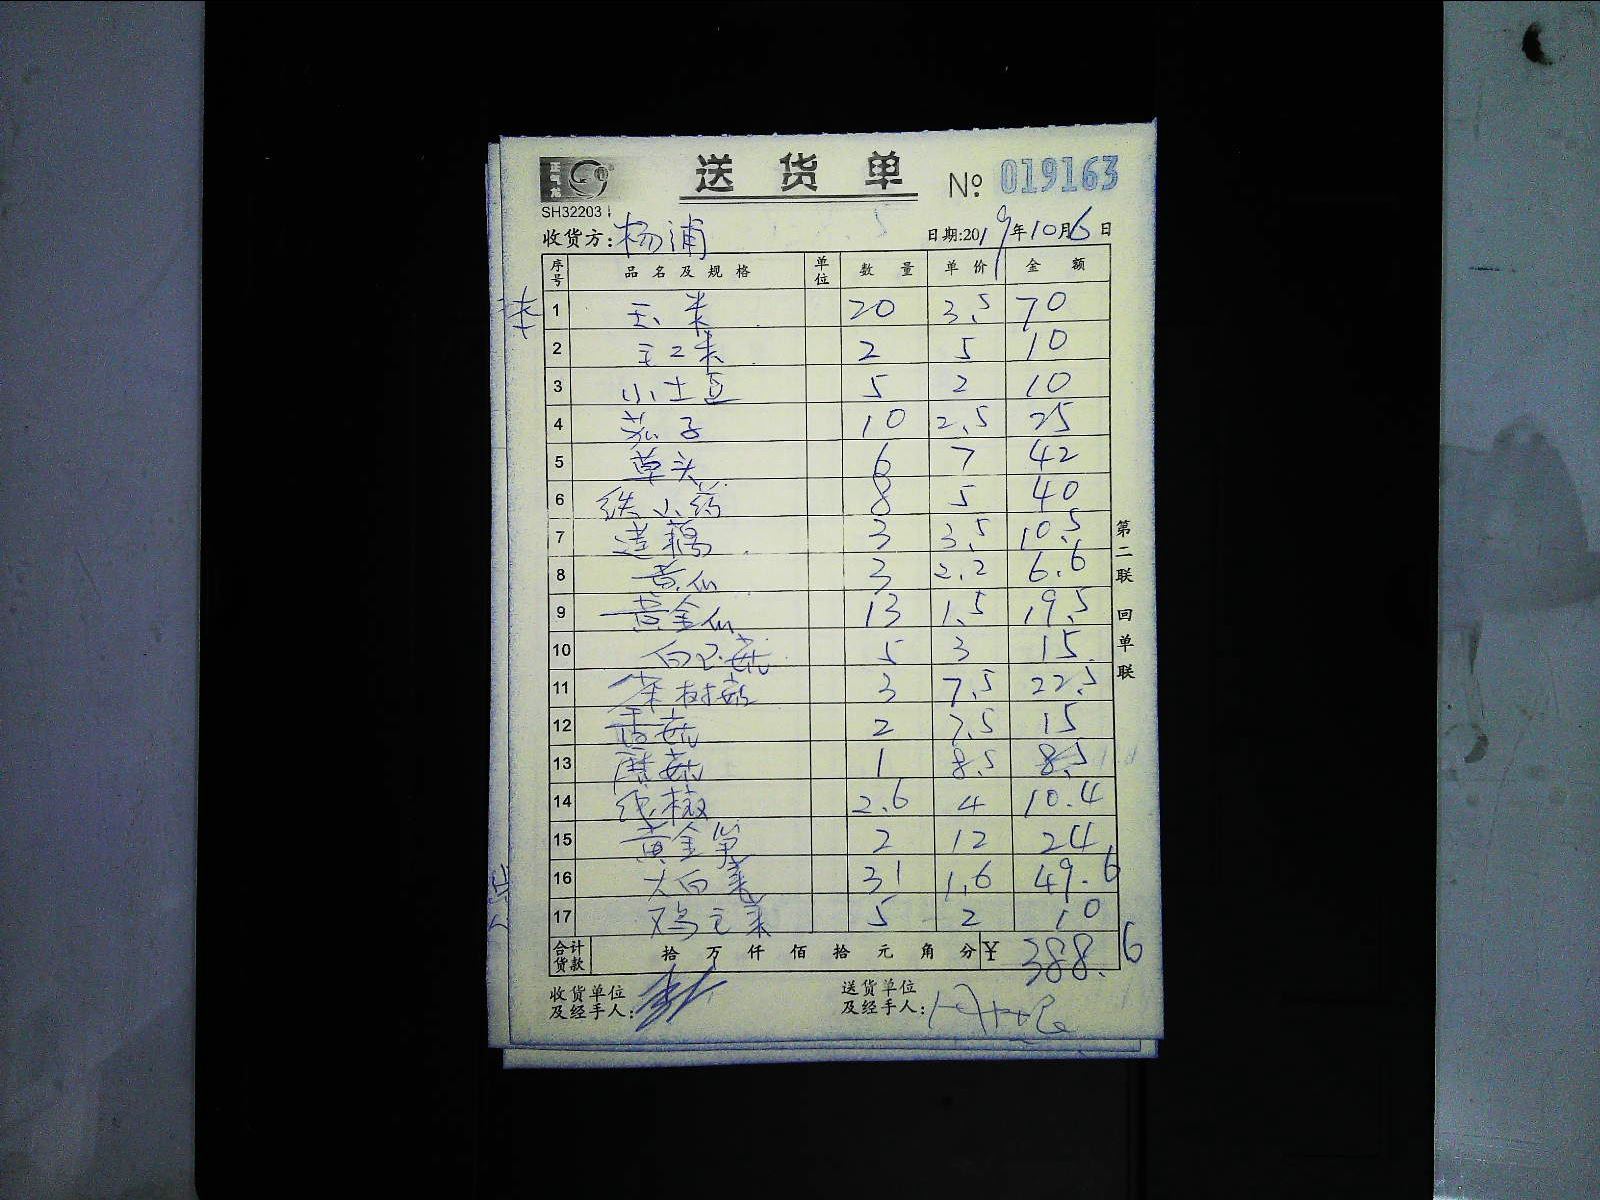 送货单 № 019163
SH32203
收货方: 杨浦 日期:2019年10月6日
序号 品名及规格 单位 数量 单价 金额
1 玉米 20 3.5 70
2 玉2米 2 5 10
3 小土豆 5 2 10
4 茄子 10 2.5 25
5 草头 6 7 42
6 铁小药 8 5 40
7 莲藕 3 3.5 10.5
8 黄瓜 3 2.2 6.6
9 黄金瓜 13 1.5 19.5
10 白玉菇 5 3 15
11 茶树菇 3 7.5 22.5
12 香菇 2 7.5 15
13 蘑菇 1 8.5 8.5
14 线椒 2.6 4 10.4
15 黄金笋 2 12 24
16 大白菜 31 1.6 49.6
17 鸡毛菜 5 2 10
合计货款 拾 万 仟 佰 拾 元 角 分 ¥ 388.6
收货单位及经手人:
送货单位及经手人:
第二联 回单联